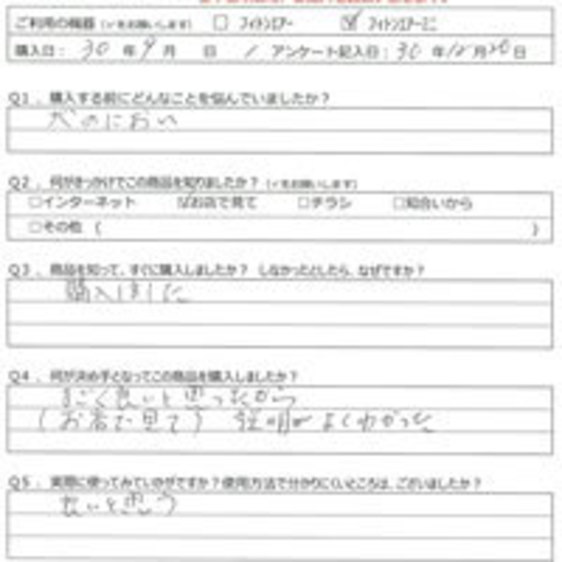 ご利用の機器（✓をお願いします） □ フィトンエアー ☑ フィトンエアーミニ
購入日： 30 年 9 月 日 / アンケート記入日： 30 年 12 月 20 日
Q1．購入する前にどんなことを悩んでいましたか？
犬のにおい
Q2．何がきっかけでこの商品を知りましたか？（✓をお願いします）
□インターネット ☑お店で見て □チラシ □知合いから
□その他（ ）
Q3．商品を知って、すぐに購入しましたか？ しなかったとしたら、なぜですか？
購入しました
Q4．何が決め手となってこの商品を購入しましたか？
すごく良いと思ったから
（お店で見て） 説明がよくわかった
Q5．実際に使ってみていかがですか？使用方法で分かりにくいところは、ございましたか？
良いと思う